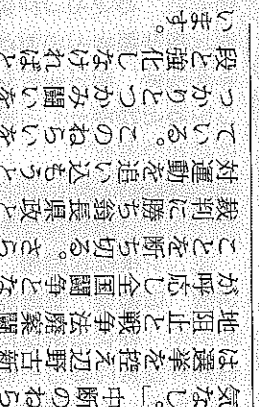 気なし。」中断のねら
は選挙を控え辺野古新
地阻止と戦争法廃案闘
が呼応し全国闘争とな
ことを断ち切る。さら
裁判に勝ち翁長県政と
対運動を追い込もうと
ている。このねらいを
っかりとつかみ闘いを
段と強化しなければと
います。